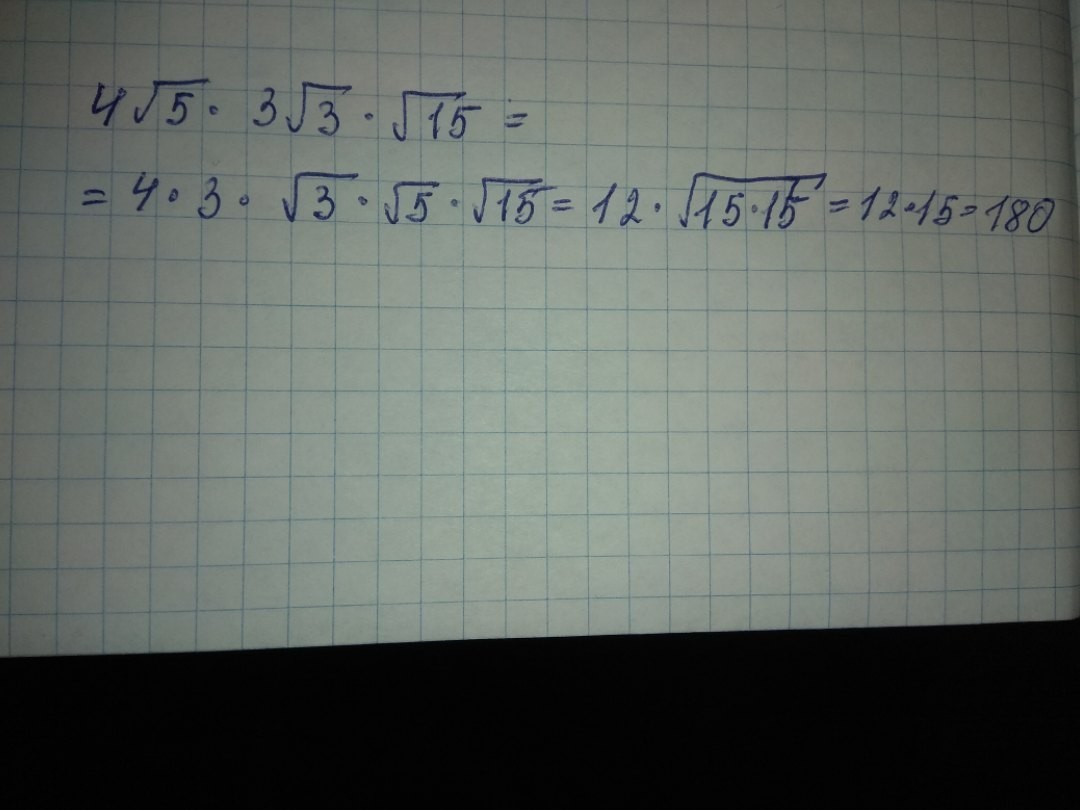 4√5 · 3√3 · √15 =
= 4 · 3 · √3 · √5 · √15 = 12 · √15·15 = 12·15=180